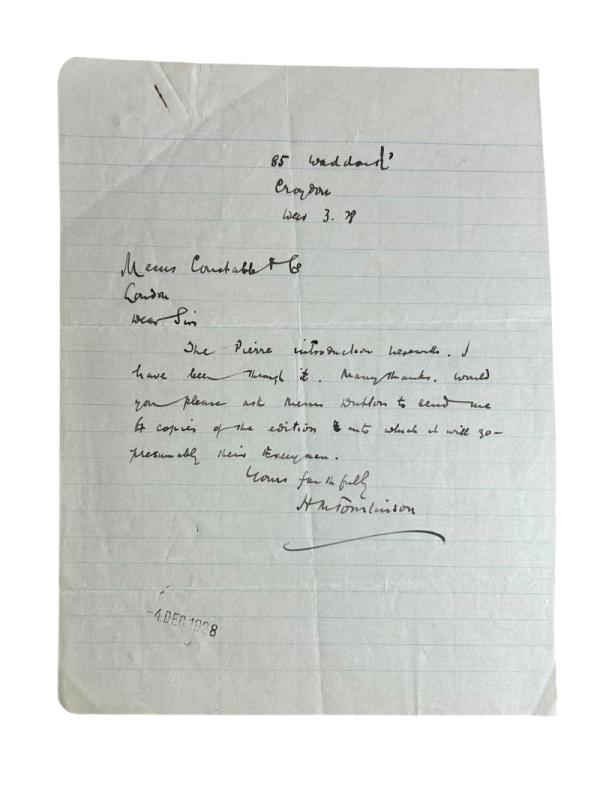 85 Waddon
Croydon
Dec 3. 28
Messrs Constable & Co
London
Dear Sirs
The Pierre introduction herewith. I
have been through it. Many thanks. Would
you please ask Messrs Dutton to send me
6 copies of the edition into which it will go –
presumably their Everyman.
Yours faithfully
H M Tomlinson
-4 DEC 1928